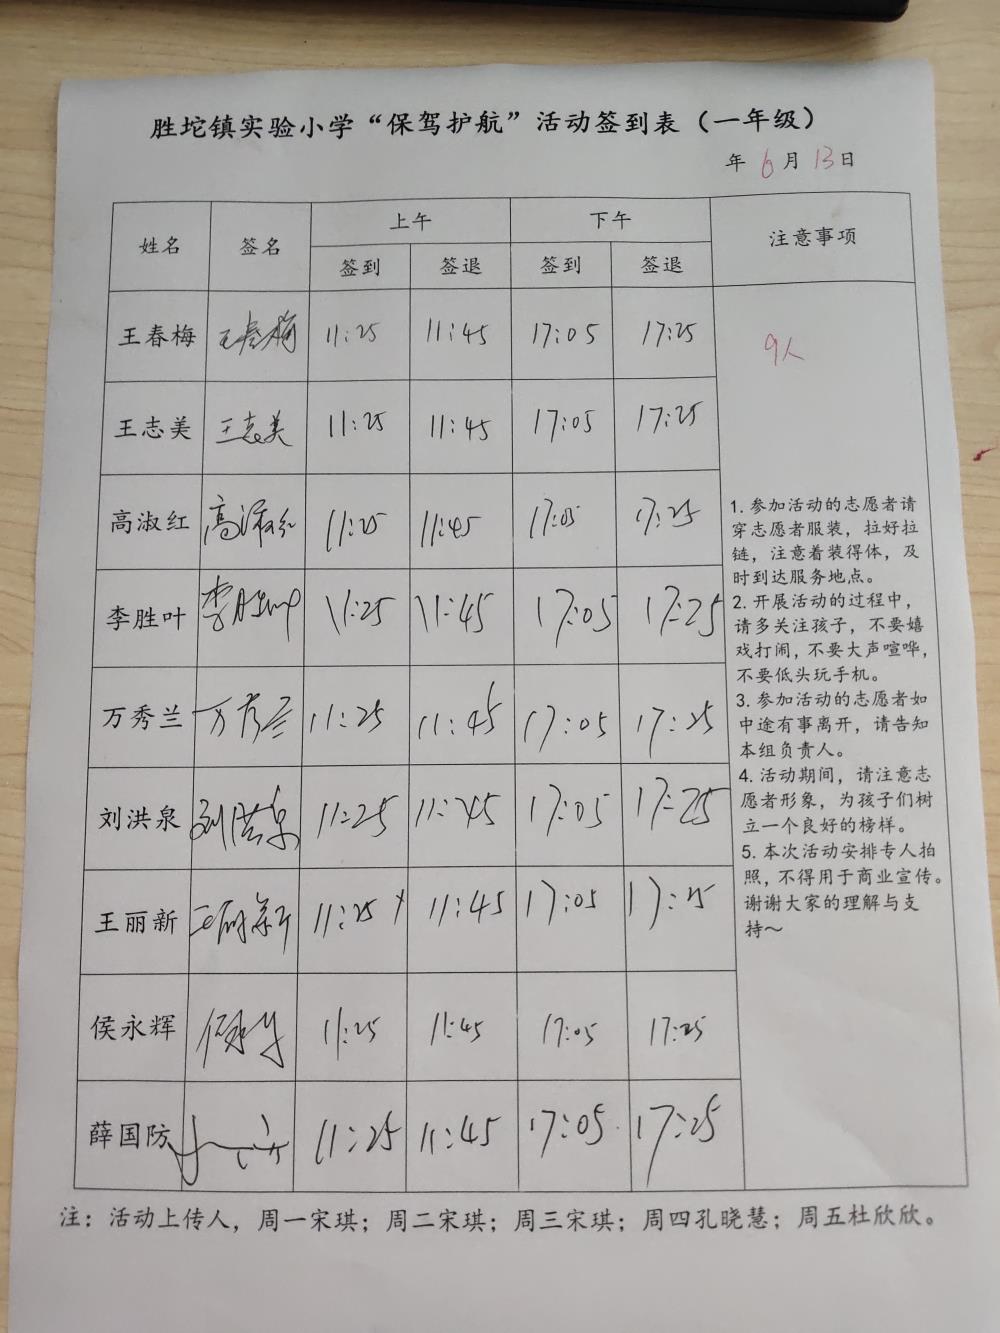 胜坨镇实验小学“保驾护航”活动签到表（一年级）
年 6 月 13 日
姓名 签名 上午 下午 注意事项
签到 签退 签到 签退
王春梅 王春梅 11:25 11:45 17:05 17:25
9人
王志美 王志美 11:25 11:45 17:05 17:25
高淑红 高淑红 11:25 11:45 17:05 17:25
李胜叶 李胜叶 11:25 11:45 17:05 17:25
万秀兰 万秀兰 11:25 11:45 17:05 17:25
刘洪泉 刘洪泉 11:25 11:45 17:05 17:25
王丽新 王丽新 11:25 11:45 17:05 17:25
侯永辉 11:25 11:45 17:05 17:25
薛国防 11:25 11:45 17:05 17:25
1. 参加活动的志愿者请
穿志愿者服装，拉好拉
链，注意着装得体，及
时到达服务地点。
2. 开展活动的过程中，
请多关注孩子，不要嬉
戏打闹，不要大声喧哗，
不要低头玩手机。
3. 参加活动的志愿者如
中途有事离开，请告知
本组负责人。
4. 活动期间，请注意志
愿者形象，为孩子们树
立一个良好的榜样。
5. 本次活动安排专人拍
照，不得用于商业宣传。
谢谢大家的理解与支
持～
注：活动上传人，周一宋琪；周二宋琪；周三宋琪；周四孔晓慧；周五杜欣欣。